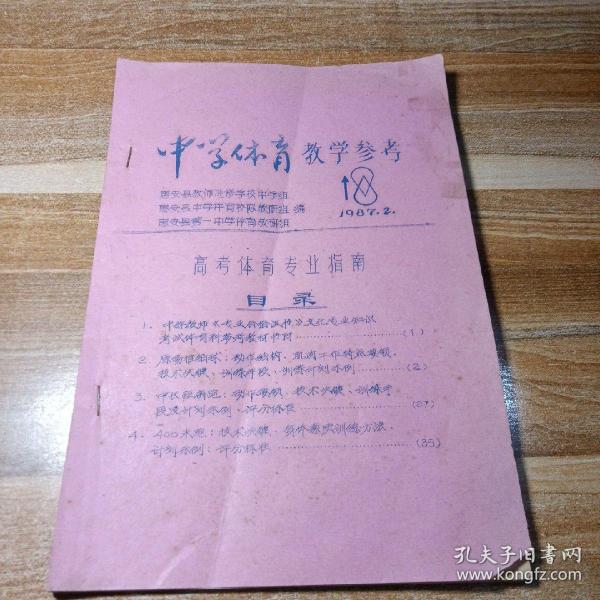 中学体育 教学参考
惠安县教师进修学校中学组
惠安县中学体育校际教研组 编
惠安县第一中学体育教研组
1987.2.
高考体育专业指南
目录
1. 中学教师《专业合格证书》文化专业知识
考试体育科参考教材书目 (1)
2. 原地推铅球：动作结构、肌肉工作特点要领、
技术关键、训练手段、训练计划示例 (2)
3. 中长距离跑：动作要领、技术关键、训练手
段及计划示例、评分标准 (27)
4. 400米跑：技术关键、训练方法、
计划示例：评分标准 (35)
孔夫子旧书网
www.kongfz.com